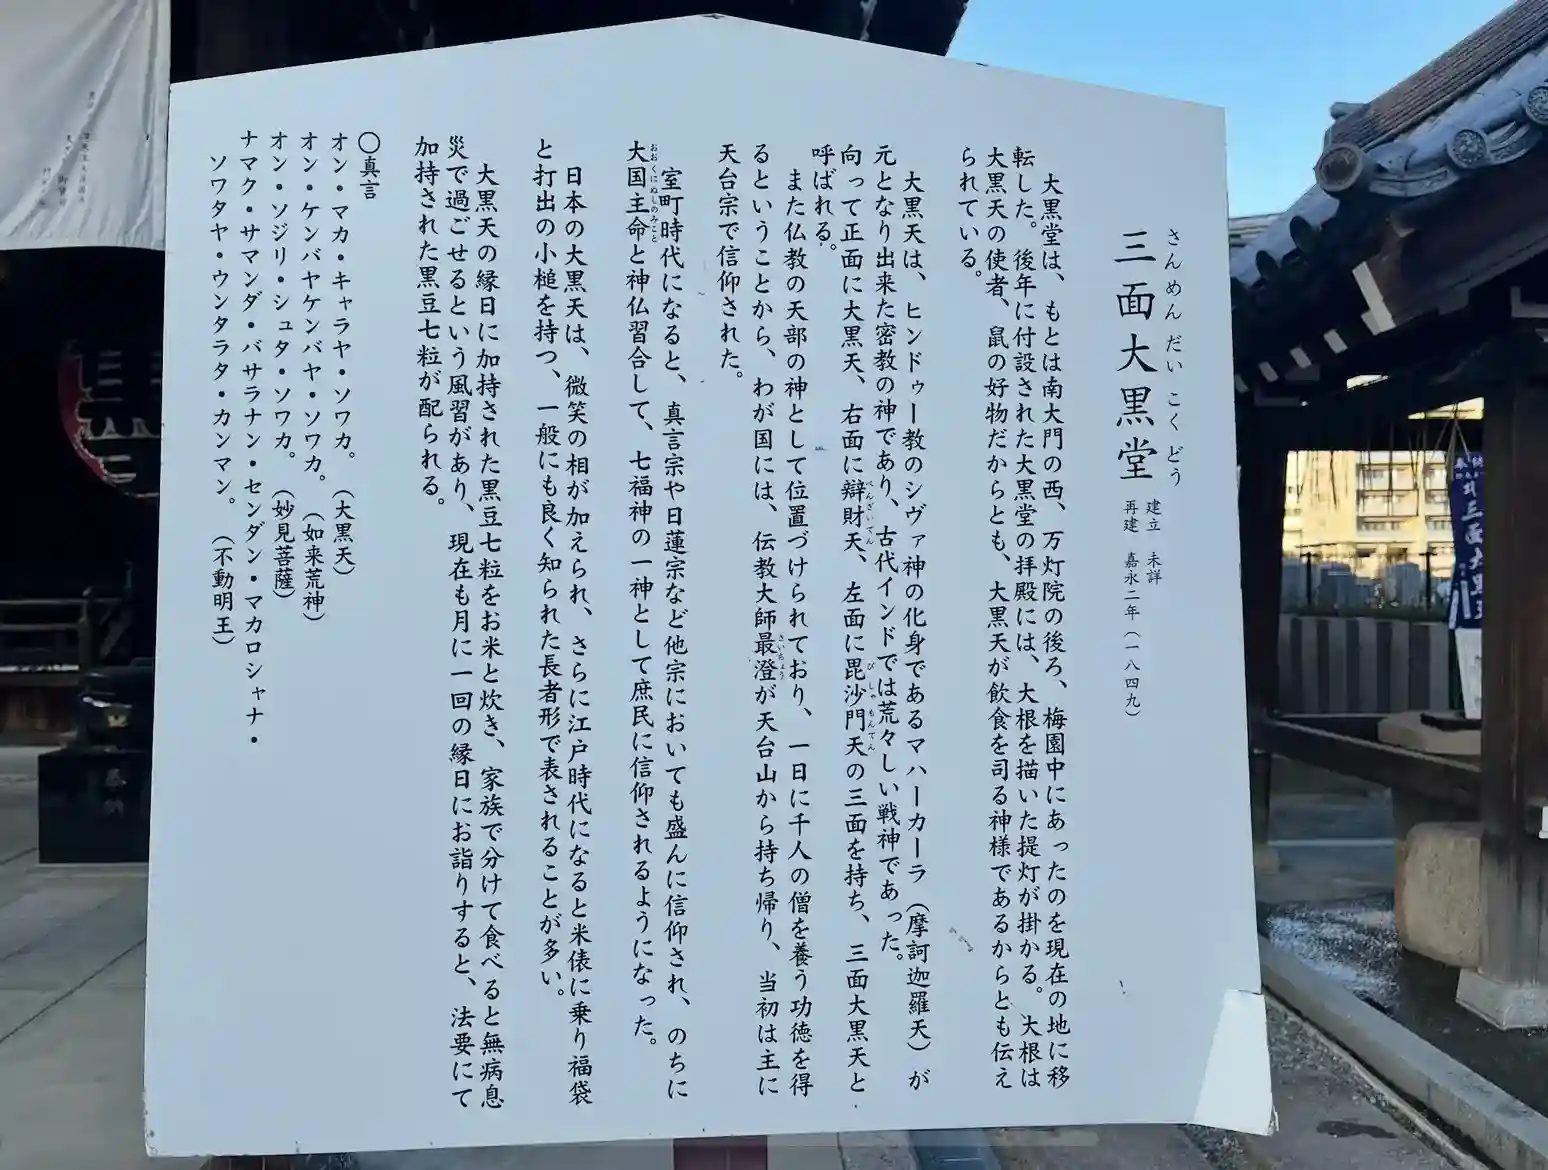 三面大黒堂
さんめん だい こく どう
建立 未詳
再建 嘉永二年(一八四九)
大黒堂は、もとは南大門の西、万灯院の後ろ、梅園中にあったのを現在の地に移
転した。後年に付設された大黒堂の拝殿には、大根を描いた提灯が掛かる。大根は
大黒天の使者、鼠の好物だからとも、大黒天が飲食を司る神様であるからとも伝え
られている。
大黒天は、ヒンドゥー教のシヴァ神の化身であるマハーカーラ(摩訶迦羅天)が
元となり出来た密教の神であり、古代インドでは荒々しい戦神であった。
向って正面に大黒天、右面に辯財天、左面に毘沙門天の三面を持ち、三面大黒天と
べんざいてん
びしゃもんてん
呼ばれる。
また仏教の天部の神として位置づけられており、一日に千人の僧を養う功徳を得
るということから、わが国には、伝教大師最澄が天台山から持ち帰り、当初は主に
さいちょう
天台宗で信仰された。
室町時代になると、真言宗や日蓮宗など他宗においても盛んに信仰され、のちに
大国主命と神仏習合して、七福神の一神として庶民に信仰されるようになった。
おおくにぬしのみこと
日本の大黒天は、微笑の相が加えられ、さらに江戸時代になると米俵に乗り福袋
と打出の小槌を持つ、一般にも良く知られた長者形で表されることが多い。
大黒天の縁日に加持された黒豆七粒をお米と炊き、家族で分けて食べると無病息
災で過ごせるという風習があり、現在も月に一回の縁日にお詣りすると、法要にて
加持された黒豆七粒が配られる。
〇真言
オン・マカ・キャラヤ・ソワカ。(大黒天)
オン・ケンバヤケンバヤ・ソワカ。(如来荒神)
オン・ソジリ・シュタ・ソワカ。(妙見菩薩)
ナマク・サマンダ・バサラナン・センダン・マカロシャナ・
ソワタヤ・ウンタラタ・カンマン。(不動明王)
奉納